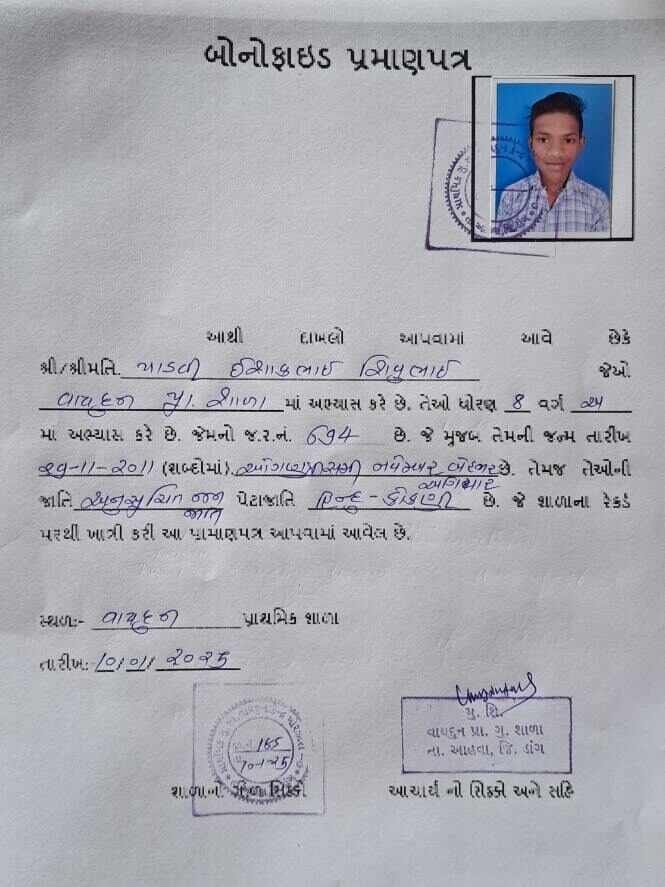 બોનોફાઇડ પ્રમાણપત્ર
આથી દાખલો આપવામાં આવે છેકે
શ્રી/શ્રીમતિ. ગાડવી ઈશાકભાઈ શિવુભાઈ જેઓ.
વાયદુન પ્રા. શાળા માં અભ્યાસ કરે છે. તેઓ ધોરણ 8 વર્ગ અ
મા અભ્યાસ કરે છે. જેમનો જ.ર.નં. 694 છે. જે મુજબ તેમની જન્મ તારીખ
૨૯-11-૨૦11 (શબ્દોમાં) ઓગણત્રીસમી નવેમ્બર બેહજાર છે. તેમજ તેઓની
અગિયાર
જાતિ અનુસુચિત જન પેટાજાતિ હિન્દુ - કોકણી છે. જે શાળાના રેકર્ડ
જાતિ
પરથી ખાત્રી કરી આ પ્રામાણપત્ર આપવામાં આવેલ છે.
સ્થળઃ- વાયદુન પ્રાથમિક શાળા
તારીખઃ 10/01/૨૦૨૫
185
10-1-25
મુ. શિ.
વાયદુન પ્રા. ગુ. શાળા
તા. આહવા, જિ. ડાંગ
શાળાનો ગોળ સિક્કો આચાર્ય નો સિક્કો અને સહિ